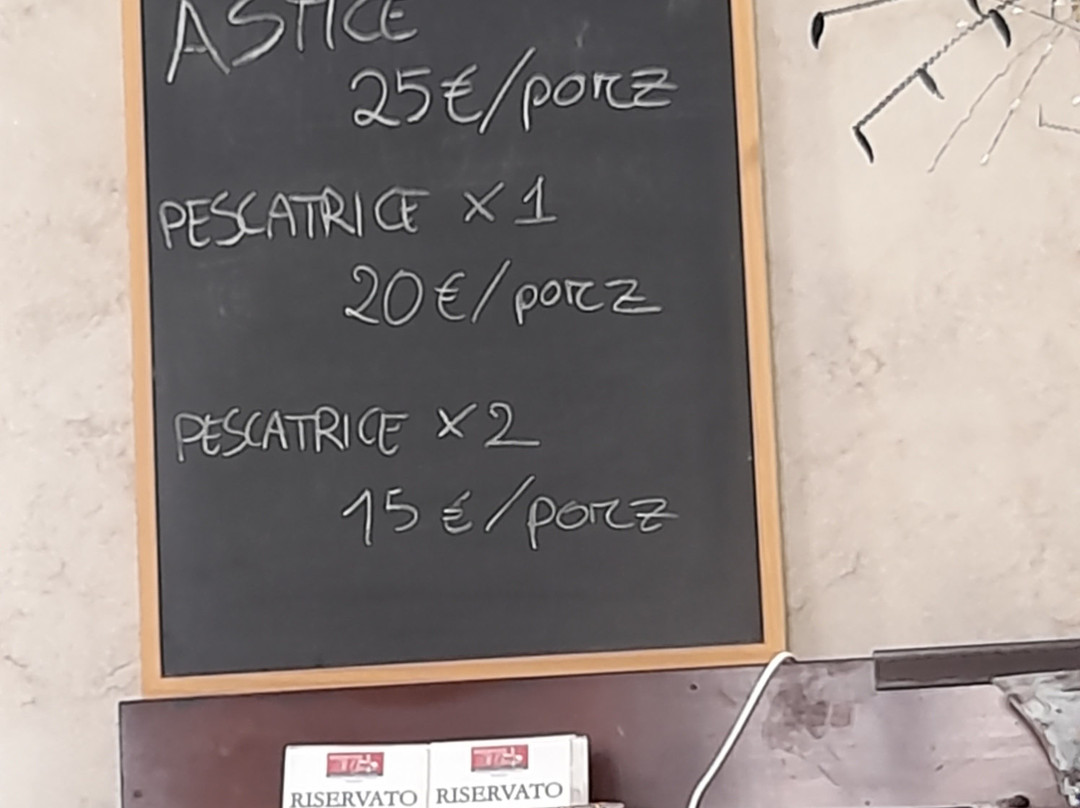 ASTICE
25€/porz
PESCATRICE x 1
20€/porz
PESCATRICE x 2
15€/porz
RISERVATO
RISERVATO